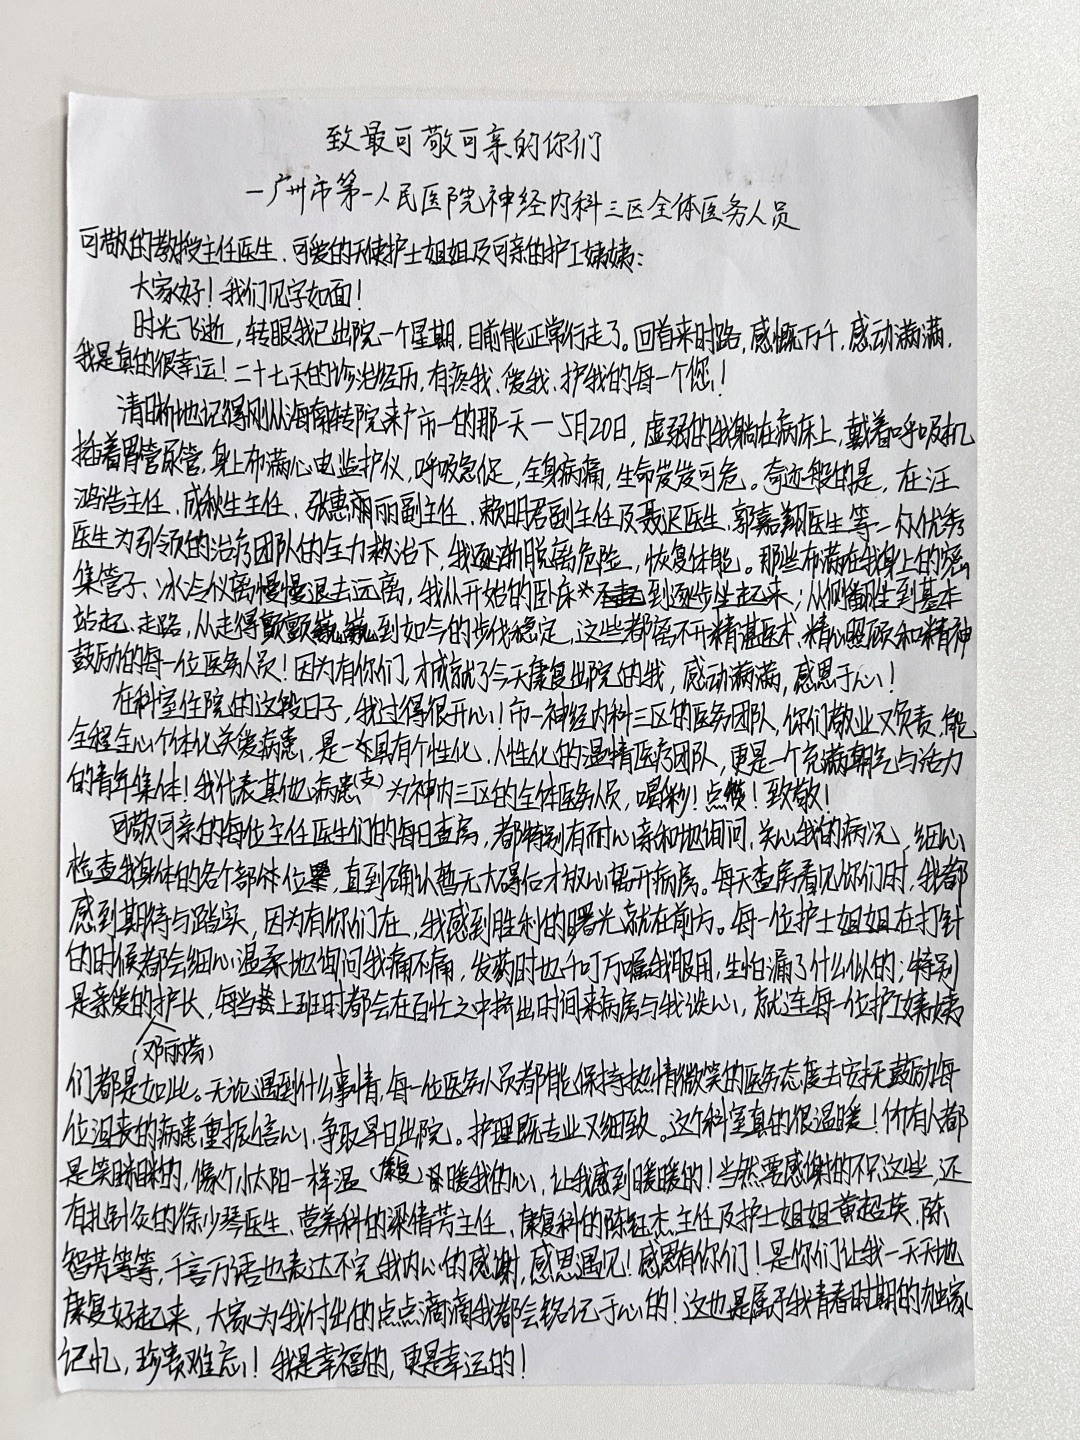 致最可敬可亲的你们
—广州市第一人民医院神经内科三区全体医务人员
可敬的教授主任医生、可爱的天使护士姐姐及可亲的护工姨姨:
大家好!我们见字如面!
时光飞逝,转眼我已出院一个星期,目前能正常行走了。回首来时路,感慨万千,感动满满,
我是真的很幸运!二十七天的诊治经历,有疼我、爱我、护我的每一个您!
清晰地记得刚从海南转院来广市一的那一天—5月20日,虚弱的我躺在病床上,戴着呼吸机
插着胃管尿管,身上布满心电监护仪,呼吸急促,全身病痛,生命岌岌可危。奇迹般的是,在汪
鸿浩主任、成秋生主任、张惠丽副主任、赖明君副主任及聂迟医生、郭嘉翔医生等一众优秀
医生为引领的治疗团队的全力救治下,我逐渐脱离危险,恢复体能。那些布满在我身上的密
集管子、冰冷仪器慢慢退去远离,我从开始的卧床到逐步坐起来;从侧翻生到基本
站起、走路,从走得颤颤巍巍到如今的步伐稳定,这些都离不开精湛医术、精心照顾和精神
鼓励的每一位医务人员!因为有你们,才成就了今天康复出院的我,感动满满,感恩于心!
在科室住院的这段日子,我过得很开心!市一神经内科三区的医务团队,你们敬业又负责,能
全程全心个体化关爱病患,是一支具有个性化、人性化的温情医疗团队,更是一个充满朝气与活力
的青年集体!我代表其他病患为神内三区的全体医务人员,喝彩!点赞!致敬!
可敬可亲的每位主任医生们的每日查房,都特别有耐心亲和地询问、关心我的病况,细心
检查我身体的各个部体位,直到确认暂无大碍后才放心离开病房。每天查房看见你们时,我都
感到期待与踏实,因为有你们在,我感到胜利的曙光就在前方。每一位护士姐姐在打针
的时候都会细心温柔地询问我痛不痛,发药时也千叮万嘱我服用,生怕漏了什么似的;特别
是亲爱的护长,每当上班时都会在百忙之中挤出时间来病房与我谈心,就连每一位护工姨姨
(邓丽芬)
们都是如此。无论遇到什么事情,每一位医务人员都能保持热情微笑的医务态度去安抚鼓励每
位沮丧的病患重振信心、争取早日出院。护理既专业又细致。这个科室真的很温暖!所有人都
是笑眯眯的,像个小太阳一样温暖我的心,让我感到暖暖的!当然要感谢的不只这些,还
有扎针灸的徐少琴医生、营养科的梁倩芳主任、康复科的陈钰杰主任及护士姐姐黄超英、陈
智芳等等,千言万语也表达不完我内心的感谢,感恩遇见!感恩有你们!是你们让我一天天地
康复好起来,大家为我付出的点点滴滴我都会铭记于心的!这也是属于我青春时期的独家
记忆,珍贵难忘!我是幸福的,更是幸运的!